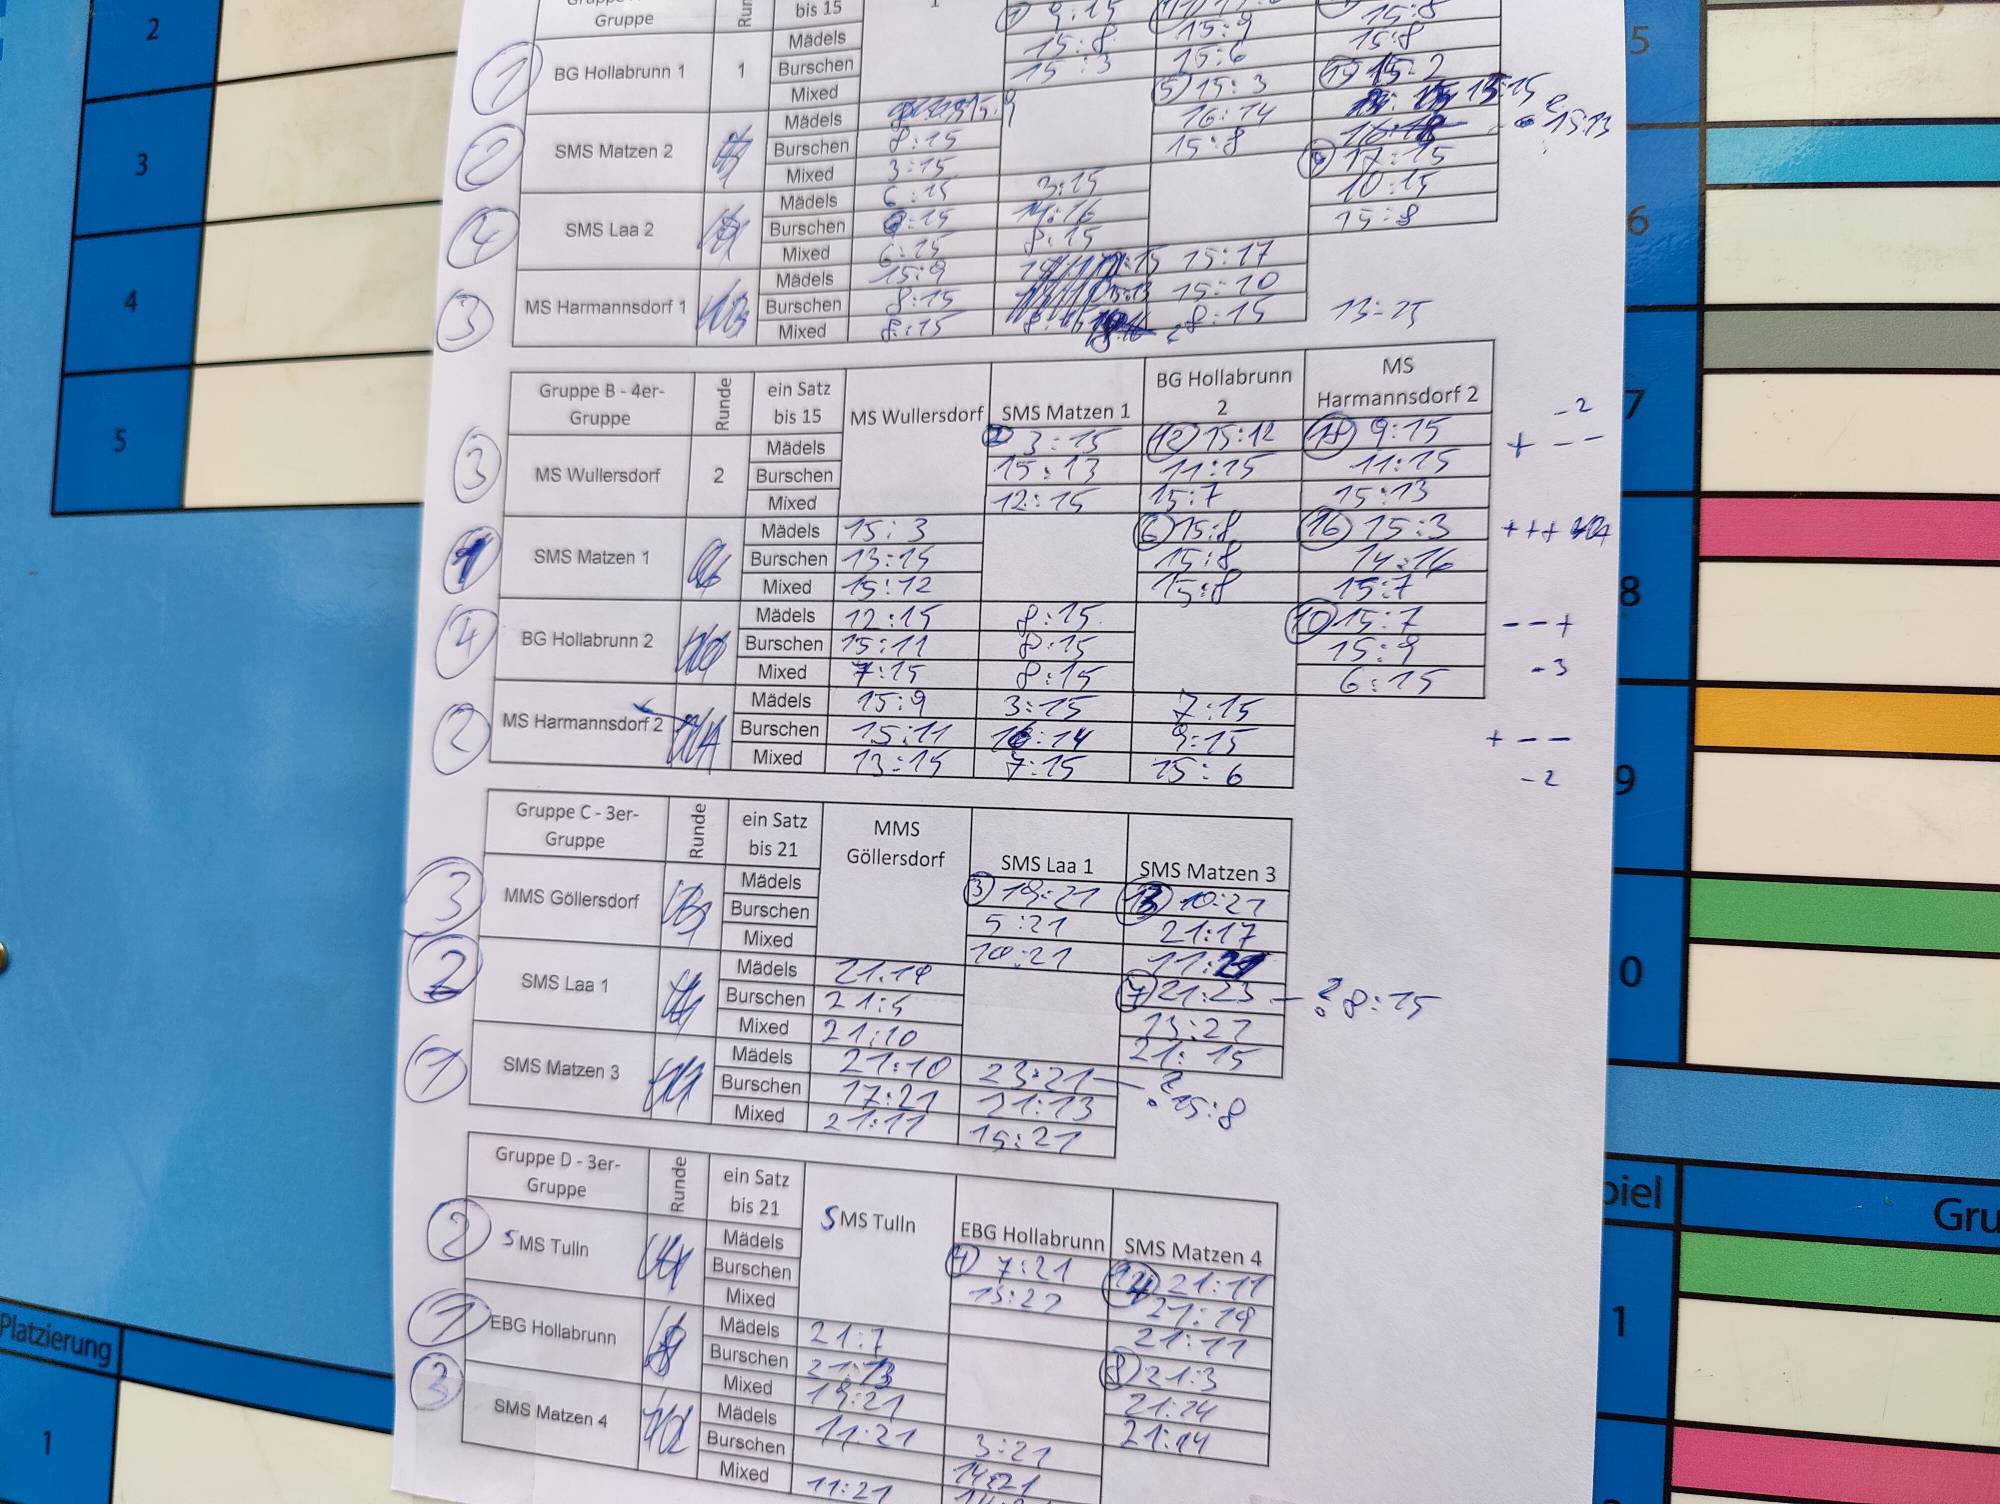 Gruppe
Run
bis 15
1
9:15
15:9
15:8
① BG Hollabrunn 1
1
Mädels
Burschen
Mixed
15:8
15:3
15:6
15:8
② SMS Matzen 2
Mädels
Burschen
Mixed
8:15
3:15
⑤ 15:3
16:14
15:8
15:2
13:15
15:13
④ SMS Laa 2
Mädels
Burschen
Mixed
6:15
9:15
6:15
3:15
14:16
8:15
⑨ 17:15
10:15
15:8
③ MS Harmannsdorf 1
Mädels
Burschen
Mixed
15:9
8:15
8:15
15:17
15:10
8:15
13:15
Gruppe B - 4er-
Gruppe
Runde
ein Satz
bis 15
MS Wullersdorf
SMS Matzen 1
BG Hollabrunn
2
MS
Harmannsdorf 2
③ MS Wullersdorf
2
Mädels ② 3:15 ⑫ 15:12 ⑱ 9:15
Burschen 15:13 11:15 11:15
Mixed 12:15 15:7 15:13
-2
+ - -
1 SMS Matzen 1
Mädels 15:3 ⑥ 15:8 ⑯ 15:3
Burschen 13:15 15:8 14:16
Mixed 15:12 15:8 15:7
+++
④ BG Hollabrunn 2
Mädels 12:15 8:15 ⑩ 15:7
Burschen 15:11 8:15 15:9
Mixed 7:15 8:15 6:15
- - +
-3
② MS Harmannsdorf 2
Mädels 15:9 3:15 7:15
Burschen 15:11 16:14 9:15
Mixed 13:15 7:15 15:6
+ - -
-2
Gruppe C - 3er-
Gruppe
Runde
ein Satz
bis 21
MMS
Göllersdorf
SMS Laa 1
SMS Matzen 3
③ MMS Göllersdorf
Mädels ③ 19:21 ⑬ 10:21
Burschen 5:21 21:17
Mixed 10:21 11:21
② SMS Laa 1
Mädels 21:19 ⑦ 21:23 - ? 8:15
Burschen 21:5 13:21
Mixed 21:10 21:15
① SMS Matzen 3
Mädels 21:10 23:21 - ? 15:8
Burschen 17:21 21:13
Mixed 21:11 15:21
Gruppe D - 3er-
Gruppe
Runde
ein Satz
bis 21
SMS Tulln
EBG Hollabrunn
SMS Matzen 4
② SMS Tulln
Mädels ④ 7:21 ⑭ 21:11
Burschen 13:21 21:19
Mixed 21:11
① EBG Hollabrunn
Mädels 21:7 ⑧ 21:3
Burschen 21:13 21:14
Mixed 19:21 21:14
③ SMS Matzen 4
Mädels 11:21 3:21
Burschen 14:21
Mixed 11:21
2
3
4
5
Platzierung
1
5
6
7
8
9
0
piel
Gru
1